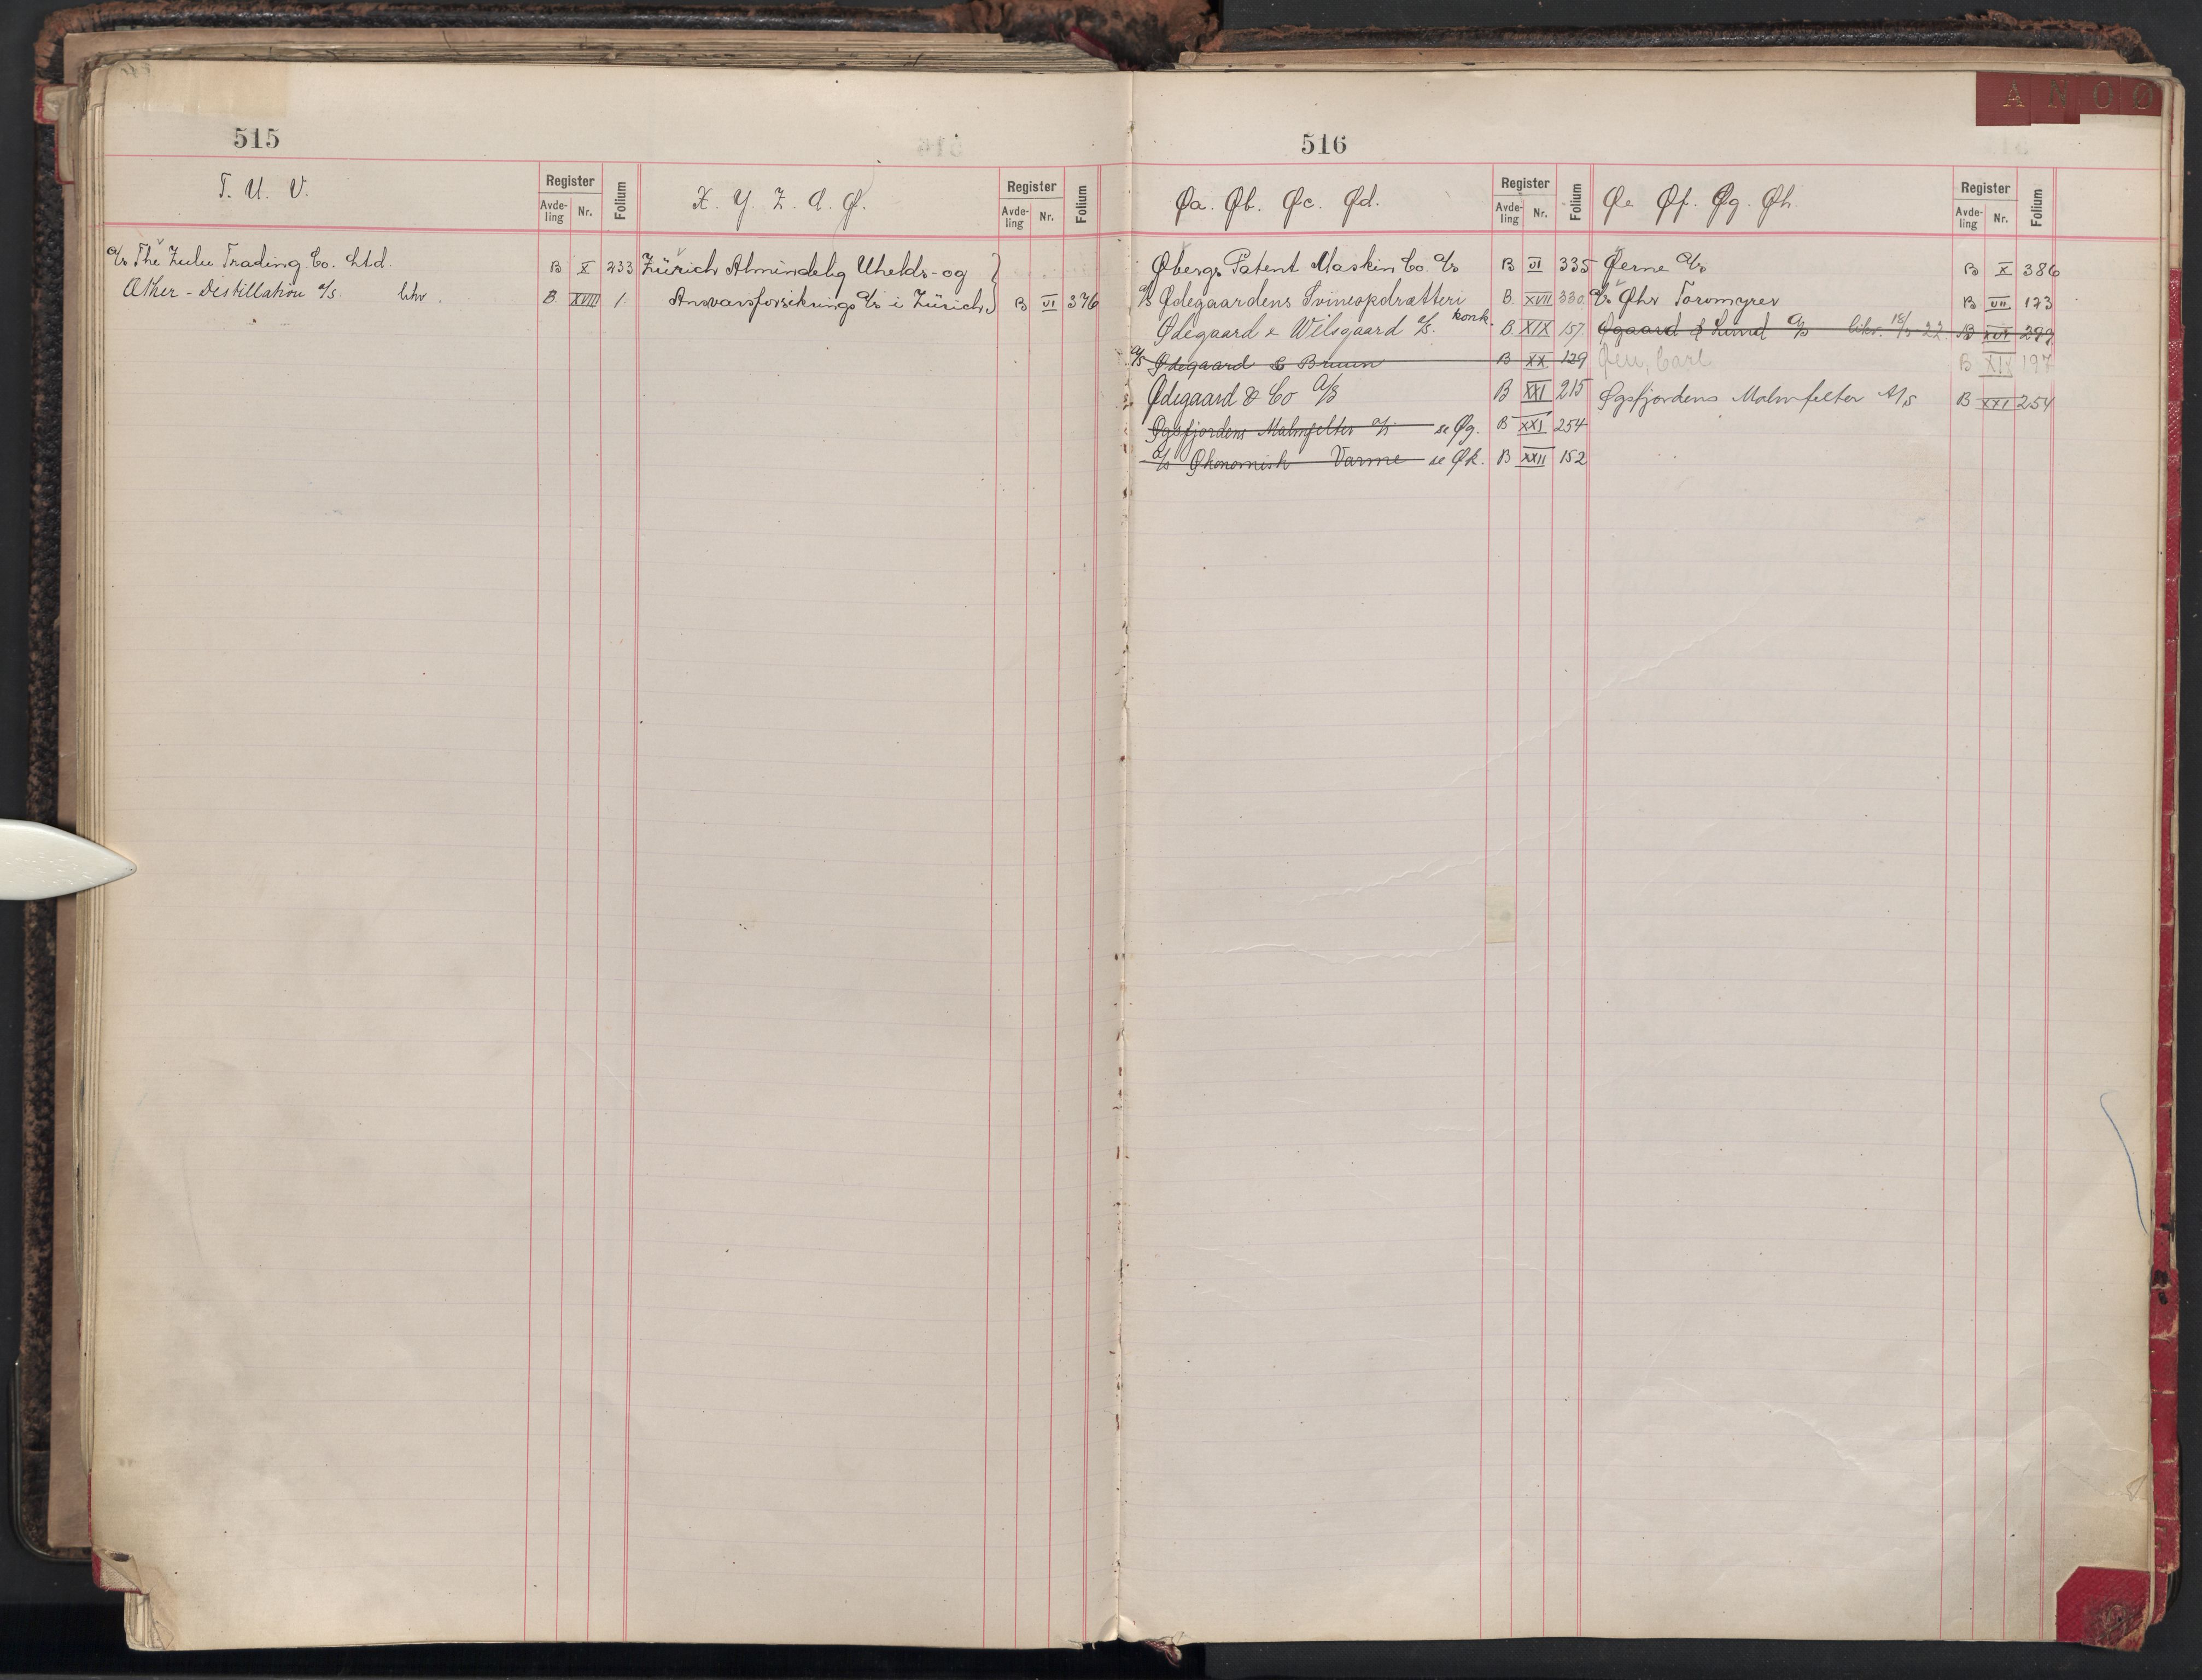 A N O Ø
515
T. U. V.
Register
Avde-ling Nr. Folium
X. Y. Z. Æ. Ø.
Register
Avde-ling Nr. Folium
A/s The Zulu Trading Co. Ltd. B X 233
Æther-Destillation A/S. B. XVIII 1.
Zürich Almindelig Uhelds- og
Ansvarsforsikrings A/s i Zürich B VI 376
516
Øa. Øb. Øc. Ød.
Register
Avde-ling Nr. Folium
Øe Øf. Øg. Øh.
Register
Avde-ling Nr. Folium
Øbergs Patent Maskin Co. A/s B VI 335
A/s Ødegaardens Svineopdrætteri B. XVII 330.
Ødegaard & Wilsgaard A/S. konk. B. XIX 157.
A/S Ødegaard & Bruun B XX 129
Ødegaard & Co A/S B XXI 215
Øgsfjordens Malmfelter A/S se Øg. B XXI 254
A/S Økonomisk Varme se Øk. B XXII 152
Øerne A/s B X 386
A/s Øhr Torvmyrer B VII 173
Øgaard & Lund A/S likv. 22. B XVI 299
Øen, Carl B XIX 197
Øgsfjordens Malmfelter A/S B XXI 254